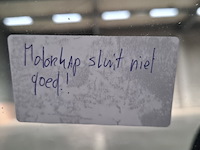 Motorkap sluit niet
goed!!